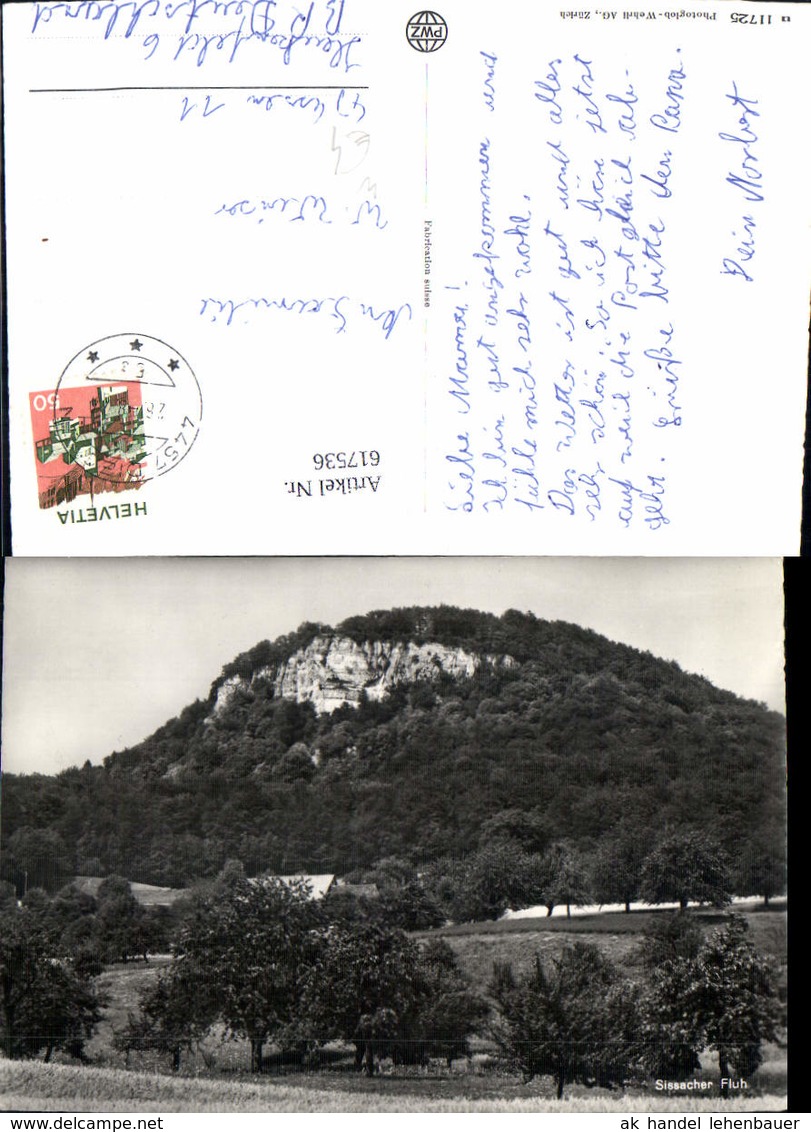 Liebe Mama!
Ich bin gut angekommen und
fühle mich sehr wohl.
Das Wetter ist gut und alles
sehr schön. So ich höre jetzt
auf weil die Post gleich ab-
geht. Grüße bitte den Papa.
Dein Norbert
11725
Photoglob-Wehrli AG., Zürich
PWZ
Fabrication suisse
An Familie
W.
11
6
BR Deutschland
HELVETIA
50
Artikel Nr.
617536
Sissacher Fluh
ak handel lehenbauer